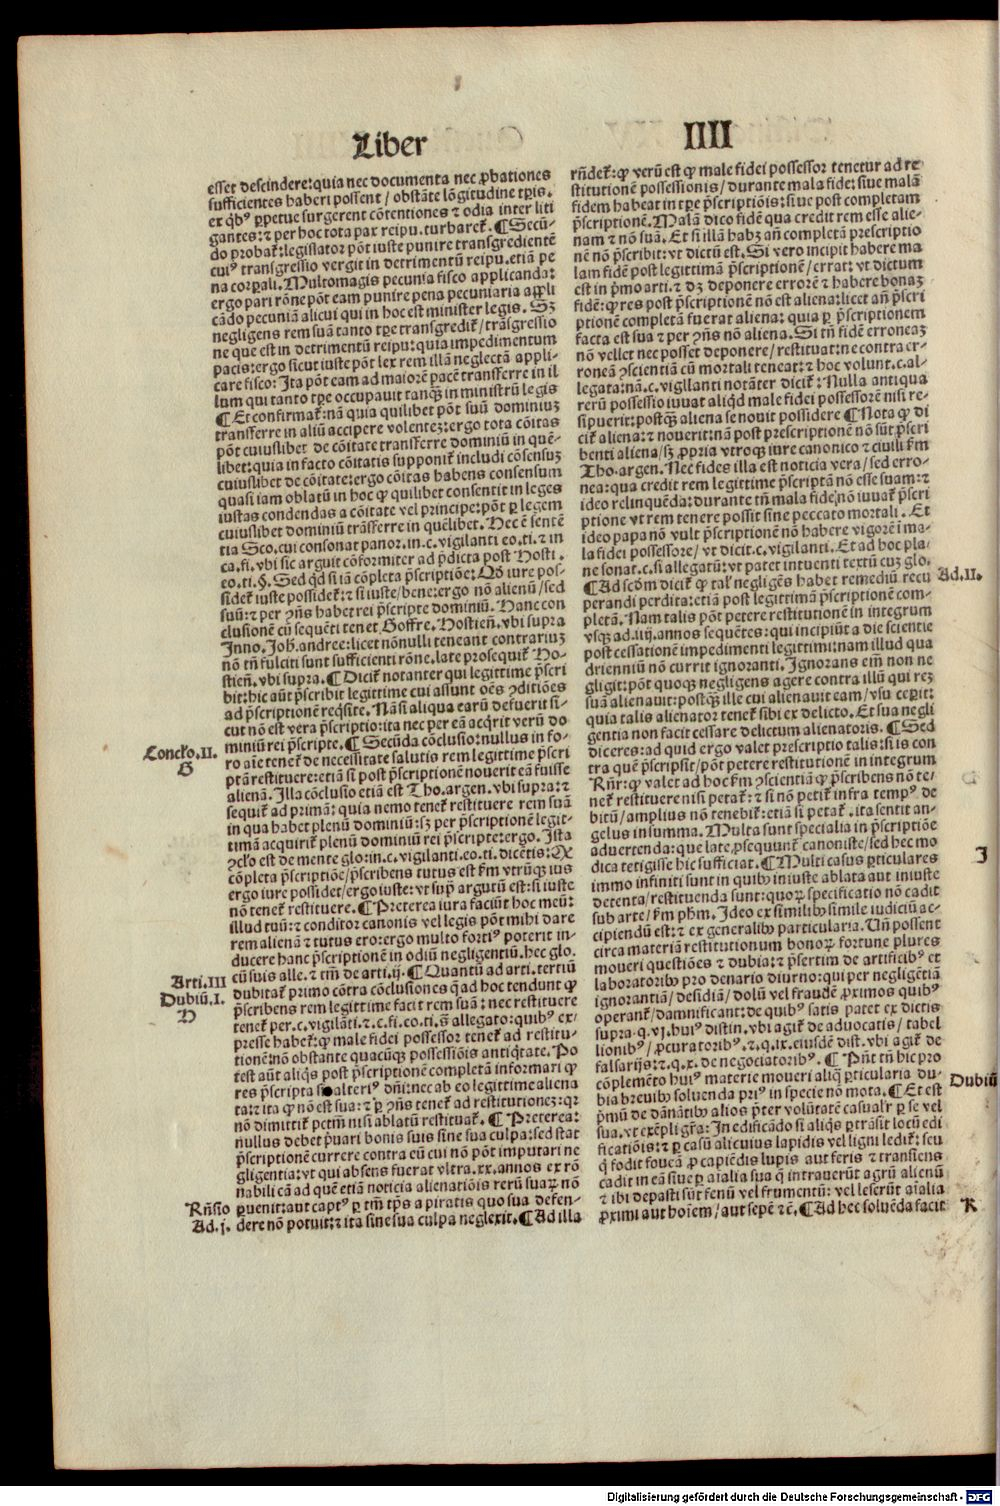 Liber
IIII
esset descindere: quia nec documenta nec ꝓbationes
sufficientes haberi possent / obstãte lõgitudine tꝑis.
ex qͥbꝰ ꝑpetue surgerent cõtentiones ⁊ odia inter liti
gantes: ⁊ per hoc tota pax reipu. turbareť. ¶ Secũ-
do probať: legislator põt iuste punire transgredientẽ
cuiꝰ transgressio vergit in detrimentũ reipu. etiã pe
na corꝑali. Multomagis pecunia fisco applicanda:
ergo pari rõne põt eam punire pena pecuniaria aꝓpli
cãdo pecuniã alicui qui in hoc est minister legis. Sꝫ
negligens rem suã tanto tꝑe transgrediť / trãsgressio
ne que est in detrimentũ reipu: quia impedimentum
pacis: ergo sicut iuste põt lex rem illã neglectã appli-
care fisco: Ita põt eam ad maiorẽ pacẽ transferre in il
lum qui tanto tꝑe occupauit tanqꝫ in ministrũ legis
¶ Et confirmať: nã quia quilibet põt suũ dominiuꝫ
transferre in aliũ accipere volenteꝫ: ergo tota cõitas
põt cuiuslibet de cõitate transferre dominiũ in quẽ-
libet: quia in facto cõitatis supponiť includi cõsensuꝫ
cuiuslibet de cõitate: ergo cõitas habens consensum
quasi iam oblatũ in hoc ꝙ quilibet consentit in leges
iustas condendas a cõitate vel principe: põt ꝑ legem
cuiuslibet dominiũ trãsferre in quẽlibet. Hec ẽ sentẽ
tia Sco. cui consonat panor. in. c. vigilanti eo. ti. ⁊ in
ca. fi. vbi sic arguit cõformiter ad p̃dicta post Hosti.
eo. ti. §. Sed qͥd si iã cõpleta p̃scriptiõe: Qd iure pos-
sideť iuste possideť: ⁊ si iuste / bene: ergo nõ alienũ / sed
suũ: ⁊ per ꝯñs habet rei p̃scripte dominiũ. Hanc con
clusionẽ cũ sequẽti tenet Goffre. Hostieñ. vbi supra
Inno. Joh. andree: licet nõnulli teneant contrariuꝫ
nõ tñ fulciti sunt sufficienti rõne. late prosequiť Ho-
stieñ. vbi supra. ¶ Diciť notanter qui legittime p̃scri
bit: hic aũt p̃scribit legittime cui assunt oẽs ꝯditiões
ad p̃scriptionẽ reqͥsite. Nã si aliqua earũ defuerit si-
cut nõ est vera p̃scriptio: ita nec per eã acqͥrit verũ do
miniũ rei p̃scripte. ¶ Secũda cõclusio: nullus in fo-
ro aĩe teneť de necessitate salutis rem legittime p̃scri
ptã restituere: etiã si post p̃scriptionẽ nouerit eã fuisse
alienã. Illa cõclusio etiã est Tho. argen. vbi supra: ⁊
sequiť ad primã: quia nemo teneť restituere rem suã
in qua habet plenũ dominiũ: sꝫ per p̃scriptionẽ legit-
timã acquiriť plenũ dominiũ rei p̃scripte: ergo. Ista
ꝯcło est de mente glo: in. c. vigilanti. eo. ti. dicẽtis: Qꝫ
cõpleta p̃scriptiõe / p̃scribens tutus est ꝑm vtrũqꝫ ius
ergo iure possidet / ergo iuste: vt supͣ argutũ est: si iuste
nõ teneť restituere. ¶ Preterea iura faciũt hoc meũ:
illud tuũ: ⁊ conditor canonis vel legis põt mihi dare
rem alienã ⁊ tutus ero: ergo multo fortiꝰ poterit in-
ducere hanc p̃scriptionẽ in odiũ negligentiũ. hec glo.
cũ suis alle. ⁊ tm̃ de arti. ij. ¶ Quantũ ad arti. tertiũ
dubitať primo cõtra cõclusiones qͣ ad hoc tendunt ꝙ
p̃scribens rem legittime facit rem suã: nec restituere
teneť per. c. vigilãti. ⁊. c. fi. eo. ti. s̃ allegato: quibꝰ ex
presse habeť: ꝙ male fidei possessor teneť ad restitu-
tionẽ: nõ obstante quacũqꝫ possessiõis antiqͥtate. Po
test aũt aliqͥs post p̃scriptionẽ completã informari ꝙ
res p̃scripta sit alteriꝰ dñi: nec ab eo legittime aliena
ta: ⁊ ita ꝙ nõ est sua: ⁊ ꝑ ꝯñs teneť ad restitutioneꝫ: qꝛ
nõ dimittiť pctm̃ nisi ablatũ restituať. ¶ Preterea:
nullus debet p̃uari bonis suis sine sua culpa: sed stat
p̃scriptionẽ currere contra eũ cui nõ põt imputari ne
gligentia: vt qui absens fuerat vltra. xx. annos ex rõ
nabili cã ad quẽ etiã noticia alienatiõis rerũ suaꝝ nõ
ꝑuenit: aut captꝰ ꝑ tm̃ tp̃s a piratis quo sua defen-
dere nõ potuit: ⁊ ita sine sua culpa neglexit. ¶ Ad illa
Concło. II.
B
Arti. III
Dubiũ. I.
H
Rñsio
Ad. j.
rñdeť: ꝙ verũ est ꝙ male fidei possessor tenetur ad re
stitutionẽ possessionis / durante mala fide: siue malã
fidem habeat in tꝑe p̃scriptiõis: siue post completam
p̃scriptionẽ. Malã dico fidẽ qua credit rem esse alie-
nam ⁊ nõ suã. Et si illã habꝫ añ completã prescriptio
nẽ nõ p̃scribit: vt dictũ est. Si vero incipit habere ma
lam fidẽ post legittimã p̃scriptionẽ / errat: vt dictum
est in p̃mo arti. ⁊ dꝫ deponere errorẽ ⁊ habere bonaꝫ
fidẽ: ꝙ res post p̃scriptionẽ nõ est aliena: licet añ p̃scri
ptionẽ completã fuerat aliena: quia ꝑ p̃scriptionem
facta est sua ⁊ per ꝯñs nõ aliena. Si tñ fidẽ erroneaꝫ
nõ vellet nec posset deponere / restituat: ne contra er-
roneã ꝯscientiã cũ mortali teneat: ⁊ hoc volunt. c. al-
legata: nã. c. vigilanti notãter diciť: Nulla antiqua
rerũ possessio iuuat aliqͥd male fidei possessorẽ nisi re-
sipuerit: postqꝫ aliena se nouit possidere ¶ Nota ꝙ di
ciť aliena: ⁊ nouerit: nã post prescriptionẽ nõ sũt p̃scri
benti aliena / sꝫ ꝓpria vtroqꝫ iure canonico ⁊ ciuili ẜm
Tho. argen. Nec fides illa est noticia vera / sed erro-
nea: qua credit rem legittime p̃scriptã nõ esse suam: ⁊
ideo relinquẽda: durante tñ mala fide: nõ iuuať p̃scri
ptione vt rem tenere possit sine peccato mortali. Et
ideo papa nõ vult p̃scriptionẽ nõ habere vigorẽ ĩ ma-
la fidei possessore / vt dicit. c. vigilanti. Et ad hoc pla-
ne sonat. c. si allegatũ: vt patet intuenti textũ cuꝫ glo.
¶ Ad scd̃m diciť ꝙ tal̃ negligẽs habet remediũ recu
perandi perdita: etiã post legittimã p̃scriptionẽ com-
pletã. Nam talis põt petere restitutionẽ in integrum
vsqꝫ ad. iiij. annos sequẽtes: qui incipiũt a die scientie
post cessationẽ impedimenti legittimi: nam illud qua
drienniũ nõ currit ignoranti. Ignorans em̃ non ne
gligit: põt quoqꝫ negligens agere contra illũ qui reꝫ
suã alienauit: postqꝫ ille cui alienauit eam / vsu ceꝑit:
quia talis alienator teneť sibi ex delicto. Et sua negli
gentia non facit cessare delictum alienatoris. ¶ Sed
diceres: ad quid ergo valet prescriptio talis: si is con
tra quẽ p̃scripsit / põt petere restitutionẽ in integrum
Rñr: ꝙ valet ad hoc ẜm ꝯscientiã ꝙ p̃scribens nõ te-
neť restituere nisi petať: ⁊ si nõ petiť infra tempꝰ de
bitũ / amplius nõ tenebiť: etiã si petať. ita sentit an-
gelus in summa. Multa sunt specialia in p̃scriptiõe
aduertenda: que late ꝓsequunť canoniste / sed hec mo
dica tetigisse hic sufficiat. ¶ Multi casus ꝑticulares
immo infiniti sunt in quibꝰ iniuste ablata aut iniuste
detenta / restituenda sunt: quoꝝ specificatio nõ cadit
sub arte / ẜm ph̃m. Ideo ex similibꝰ simile iudiciũ ac-
cipiendũ est: ⁊ ex generalibꝰ particularia. Uñ possent
circa materiã restitutionum bonoꝝ fortune plures
moueri questiões ⁊ dubia: ⁊ p̃sertim de artificibꝰ et
laboratoribꝰ pro denario diurno: qui per negligẽtiã
ignorantiã / desidiã / dolũ vel fraudẽ ꝓximos quibꝰ
operanť / damnificant: de quibꝰ satis patet ex dictis
supra. q. vj. huiꝰ distin. vbi agiť de aduocatis / tabel
lionibꝰ / ꝓcuratoribꝰ. ⁊. q. ix. eiusdẽ dist. vbi agiť de
falsarijs: ⁊. q. x. de negociatoribꝰ. ¶ Pñt tñ hic pro
cõplemẽto huiꝰ materie moueri aliqͣ ꝑticularia du-
bia breuibꝰ soluenda priꝰ in specie nõ mota. ¶ Et est
p̃mũ de dãnãtibꝰ alios p̃ter volũtatẽ casualr̃ ꝑ se vel
sua. vt exẽpli gr̃a: In edificãdo si aliqͥs ꝑtrãsit locũ edi
ficatiõis: ⁊ ꝑ casũ alicuius lapidis vel ligni lediť: seu
qͥ fodit foueã ꝓ capiẽdis lupis aut feris ⁊ transiẽs
cadit in eã siue ꝑ aĩalia sua qͣ intrauerũt agrũ alienũ
⁊ ibi depasti sũt fenũ vel frumentũ: vel leserũt aĩalia
ꝓximi aut hoĩem / aut sepẽ ⁊c̃. ¶ Ad hec soluẽda facit
Ad. II.
J
Dubiũ
K
Digitalisierung gefördert durch die Deutsche Forschungsgemeinschaft - DFG